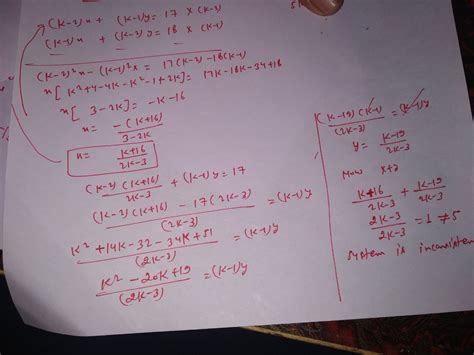 (K-2)x + (K-1)y = 17 × (K-2)
(K-1)x + (K-2)y = 18 × (K-1)
(K-2)²x - (K-1)²x = 17(K-2) - 18(K-1)
x[K²+4-4K-K²-1+2K] = 17K-18K-34+18
x[3-2K] = -K-16
x = -(K+16)/3-2K
x = K+16/2K-3
(K-2)(K+16)/2K-3 + (K-1)y = 17
(K-2)(K+16) - 17(2K-3)/(2K-3) = (K-1)y
K²+14K-32-34K+51/(2K-3) = (K-1)y
K²-20K+19/(2K-3) = (K-1)y
(K-19)(K-1)/(2K-3) = (K-1)y
y = K-19/2K-3
Now x+y
K+16/2K-3 + K-19/2K-3
2K-3/2K-3 = 1 ≠ 5
System is inconsisten